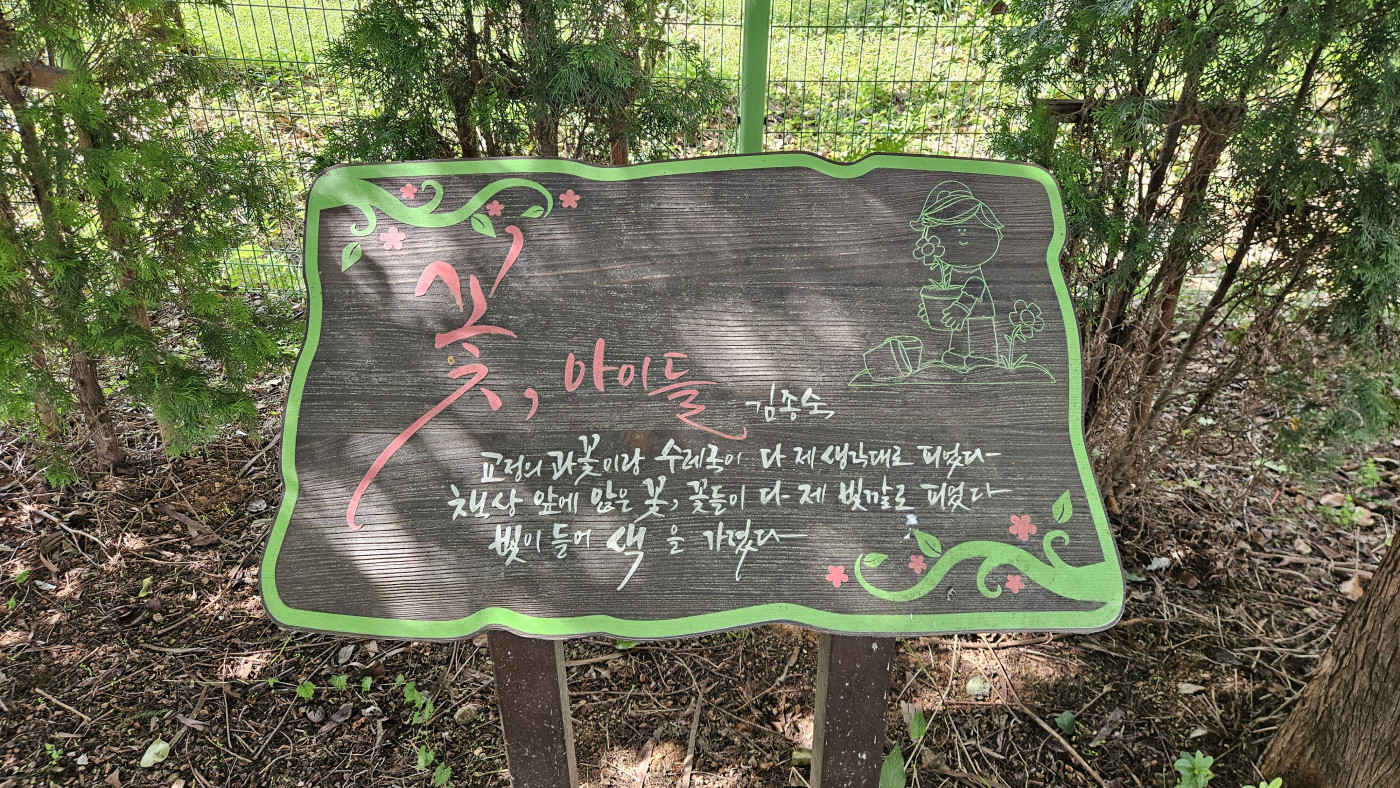 꽃, 아이들
김종숙
교정의 과꽃이랑 수레국이 다 제 생각대로 피었다
책상 앞에 앉은 꽃, 꽃들이 다 제 빛깔로 피었다
빛이 들어 색을 가졌다